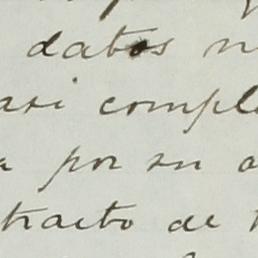 datos n
asi compl
a por su a
tracto de